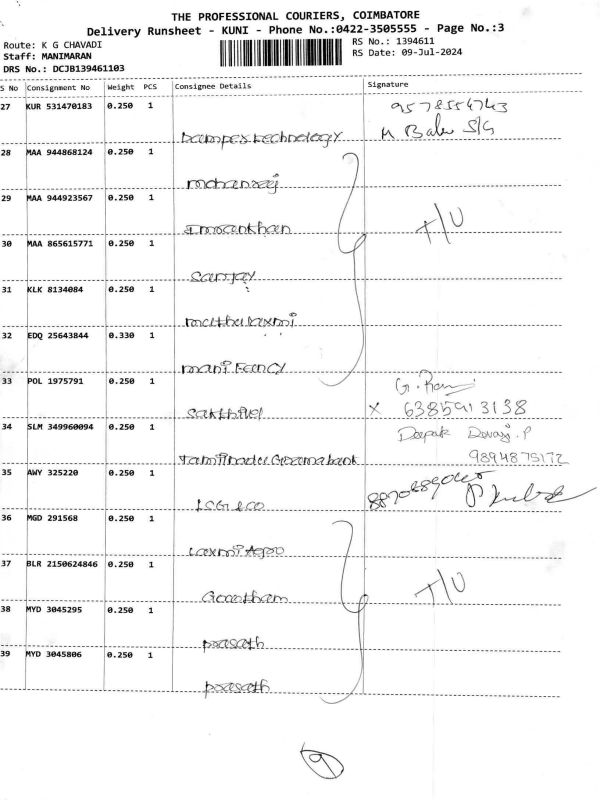 THE PROFESSIONAL COURIERS, COIMBATORE
Delivery Runsheet - KUNI - Phone No.:0422-3505555 - Page No.:3
Route: K G CHAVADI
RS No.: 1394611
Staff: MANIMARAN
RS Date: 09-Jul-2024
DRS No.: DCJB139461103
S No Consignment No Weight PCS Consignee Details Signature
27 KUR 531470183 0.250 1 9578554743
Dampex technology M S/G
28 MAA 944868124 0.250 1
mohanraj
29 MAA 944923567 0.250 1
Imrankhan T/U
30 MAA 865615771 0.250 1
Sanjay
31 KLK 8134084 0.250 1
muthulaxmi
32 EDQ 25643844 0.330 1
mani Fancy
33 POL 1975791 0.250 1 G.
Sakthivel X 6385913138
34 SLM 349960094 0.250 1 Deepak P
Tamilnadu Grama bank 9894875172
35 AWY 325220 0.250 1
LSG & CO
36 MGD 291568 0.250 1
Laxmi Agro
37 BLR 2150624846 0.250 1
Gowtham T/U
38 MYD 3045295 0.250 1
prasath
39 MYD 3045806 0.250 1
prasath
9